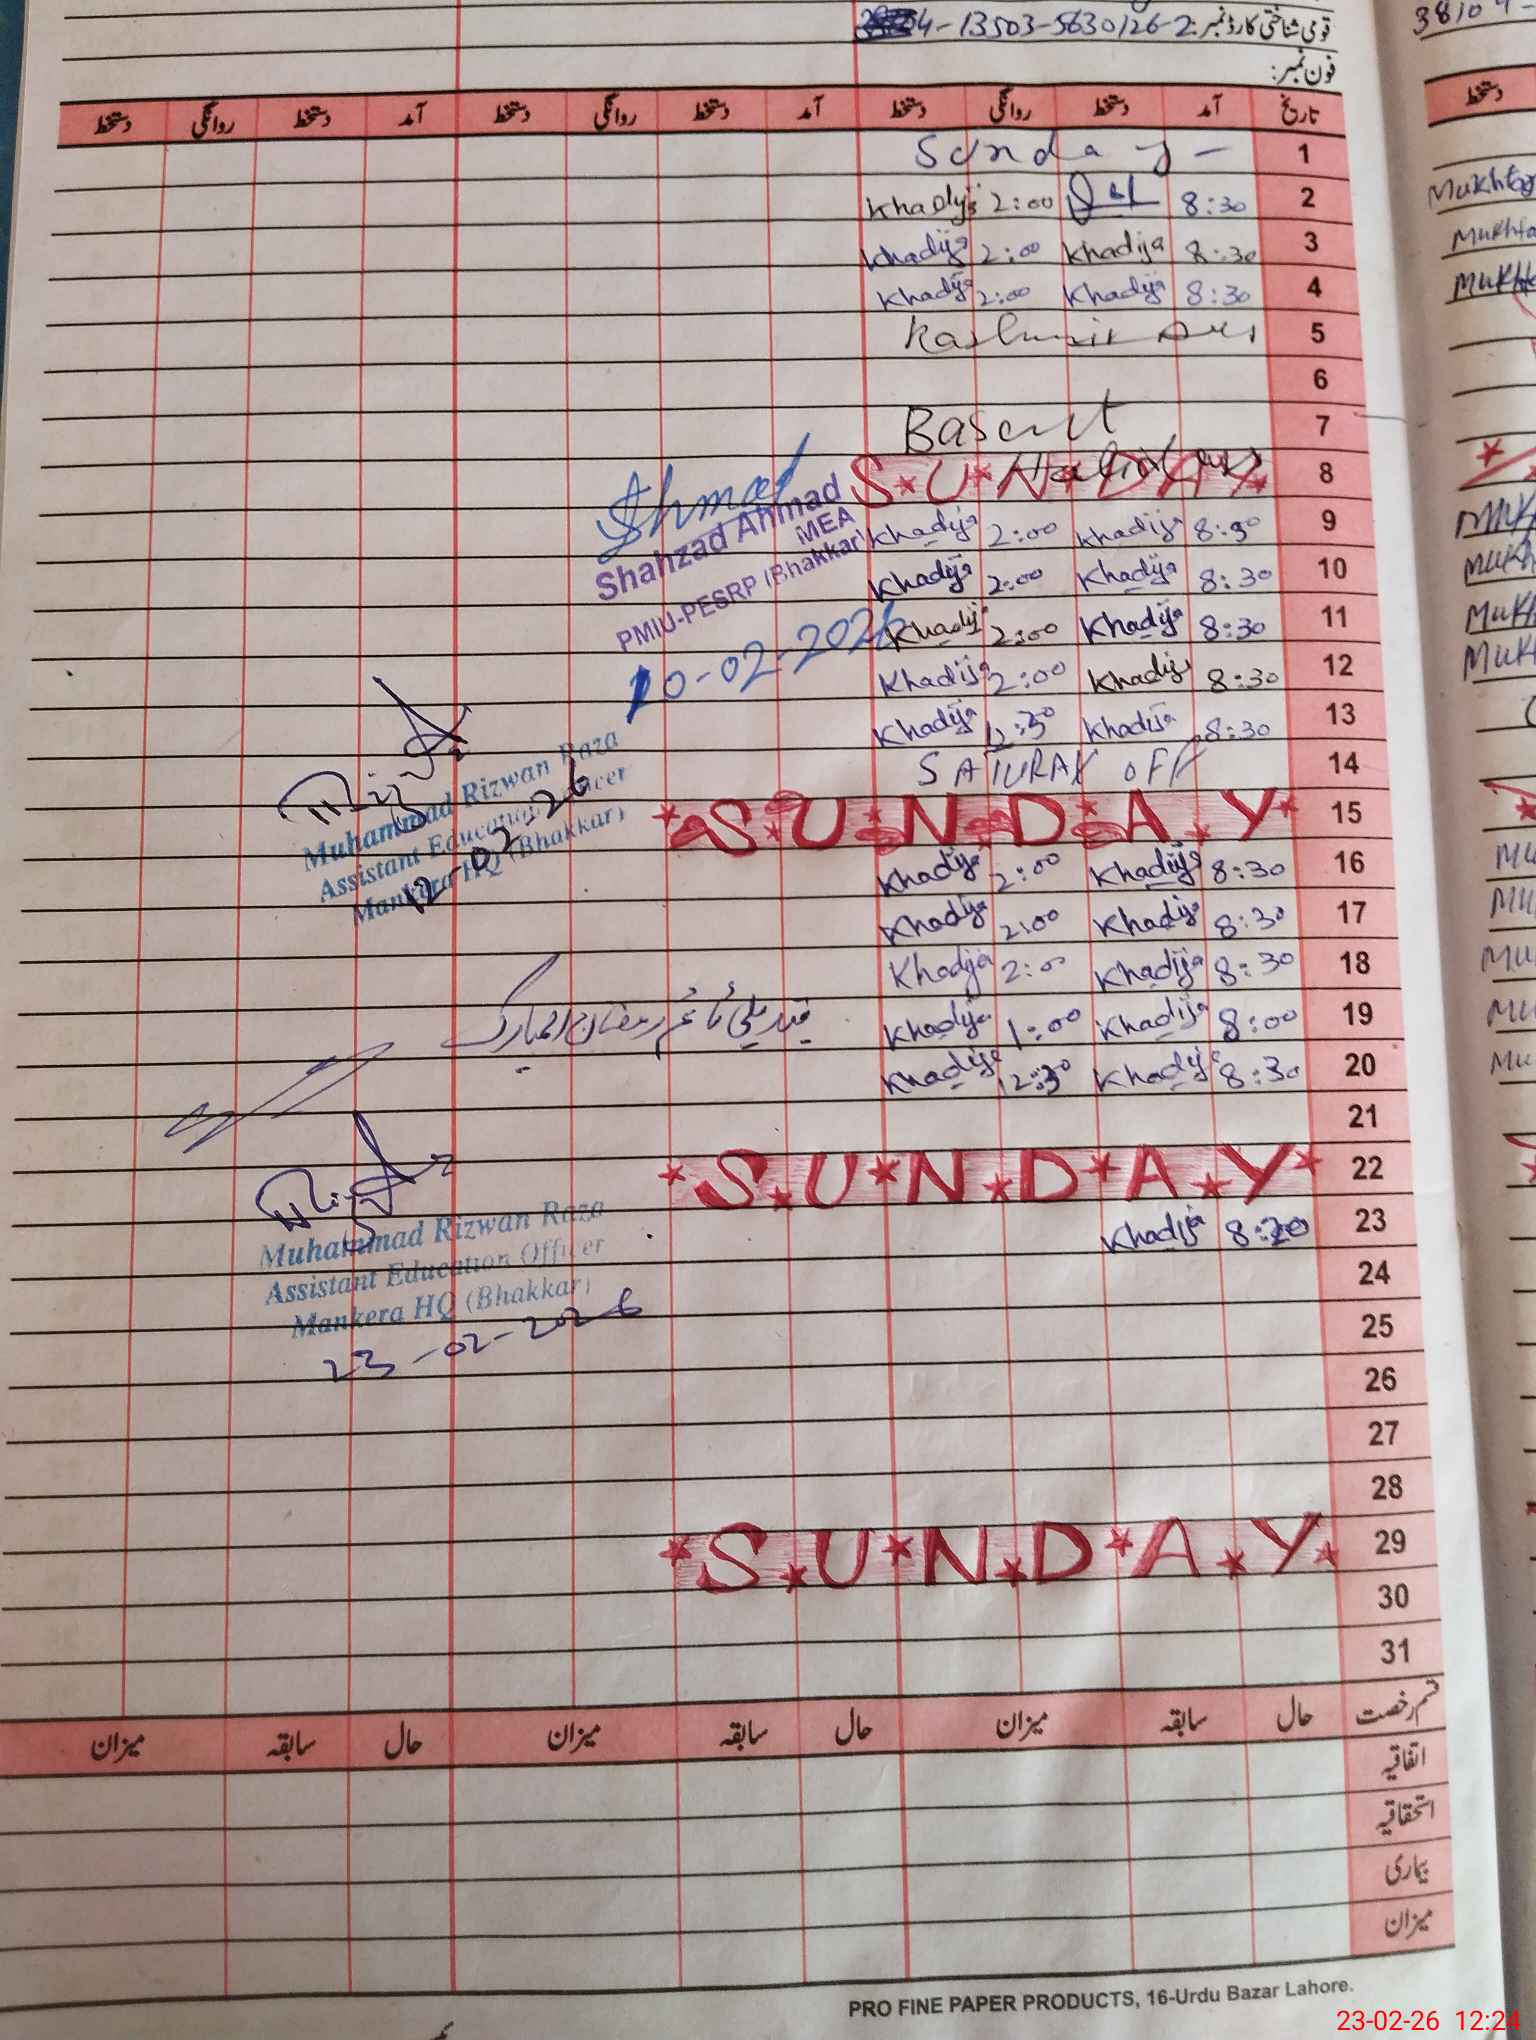 قومی شناختی کارڈ نمبر: 13503-5630126-2
فون نمبر:
تاریخ آمد دستخط روانگی دستخط آمد دستخط روانگی دستخط آمد دستخط روانگی دستخط
1 Sunday -
2 8:30 2:00 Khadija
3 8:30 Khadija 2:00 Khadija
4 8:30 Khadija 2:00 Khadija
5 Kashmir
6
7 Basant
8 SUNDAY
9 8:30 Khadija 2:00 Khadija
10 8:30 Khadija 2:00 Khadija
11 8:30 Khadija 2:00 Khadija
12 8:30 Khadija 2:00 Khadija
13 8:30 Khadija 12:30 Khadija
14 SATURAY OFF
15 SUNDAY
16 8:30 Khadija 2:00 Khadija
17 8:30 Khadija 2:00 Khadija
18 8:30 Khadija 2:00 Khadija
19 8:00 Khadija 1:00 Khadija
20 8:30 Khadija 12:30 Khadija
21
22 SUNDAY
23 8:20 Khadija
24
25
26
27
28
29 SUNDAY
30
31
Ahmad
Shahzad Ahmad
MEA
PMIU-PESRP (Bhakkar)
10-02-2026
Muhammad Rizwan Raza
Assistant Education Officer
Mankera HQ (Bhakkar)
12-02-26
تبدیلی ٹائم رمضان المبارک
Muhammad Rizwan Raza
Assistant Education Officer
Mankera HQ (Bhakkar)
23-02-2026
قسم رخصت حال سابقہ میزان حال سابقہ میزان حال سابقہ میزان
اتفاقیہ
استحقاقیہ
بیماری
میزان
PRO FINE PAPER PRODUCTS, 16-Urdu Bazar Lahore.
38104-
دستخط
Mukhta
Mukhta
23-02-26 12:24